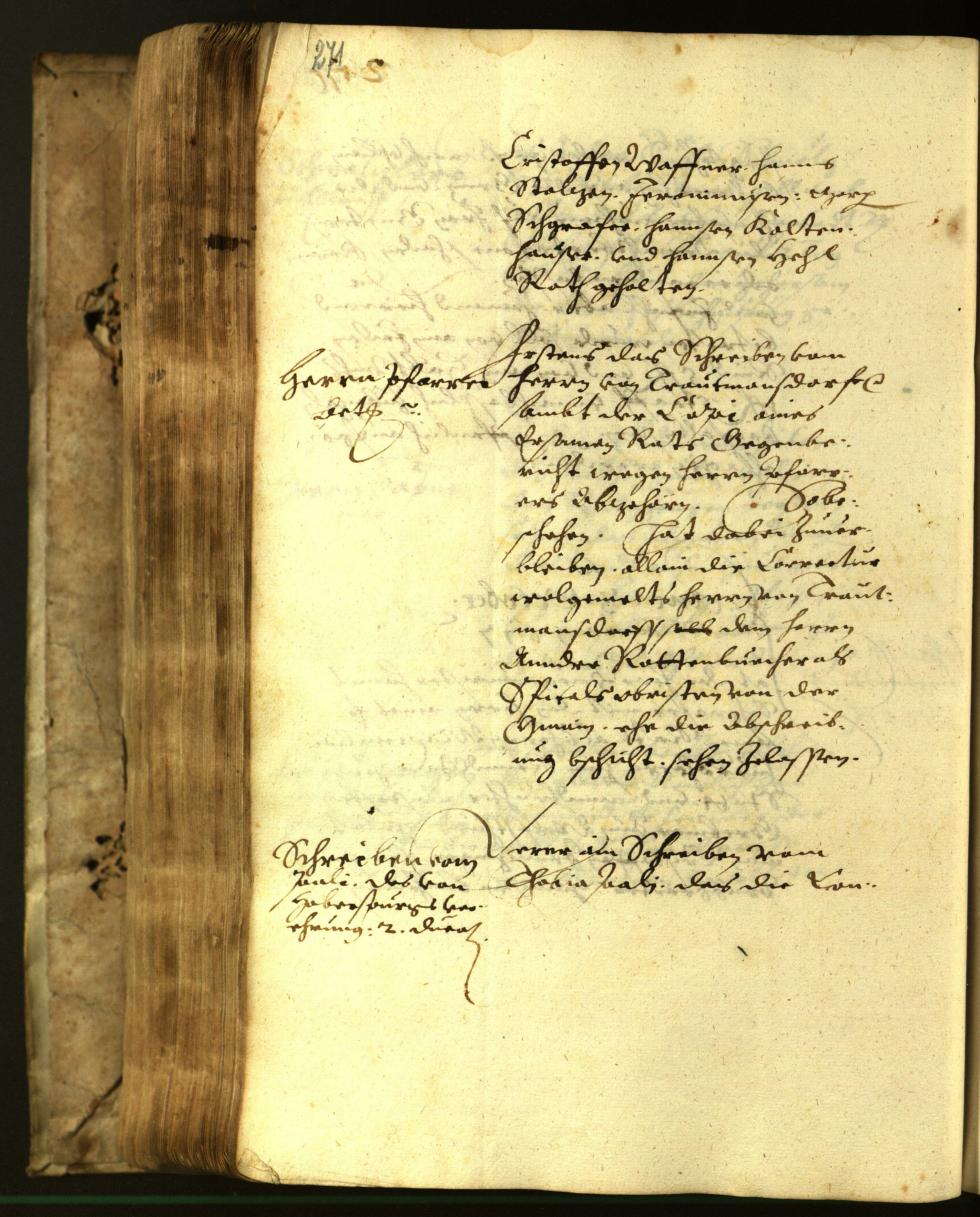 271
Cristoffen Waffner. Hanns
Stolzen. Jeronimußen: Georg
Schgraffer. Hannsen Kolten-
hauser. vnd Hannsen Hehl
Rath gehalten.
Herrn Pfarrer
betr.
Erstens das Schreiben vom
Herrn von Trautmansdorf
sambt der Copi aines
Ersamen Rats Gegenbe-
richt wegen Herrn Pfarr-
ers Abzehörn. Sobe-
schehen. Hat dabei Zuuer-
bleiben. allain die Correctur
wolgemelts Herrn von Traut-
mansdorff dem Herrn
Anndre Rottenbuecher als
Spitals obristen von der
Gmain. ehe die Abschreib-
ung bschicht. sehen Zelassen.
Schreiben vom
Paali. des von
Haberspurgs ver-
ehrung. 2. ducat.
Verer ain Schreiben vom
Thobia Paali. das die Con-